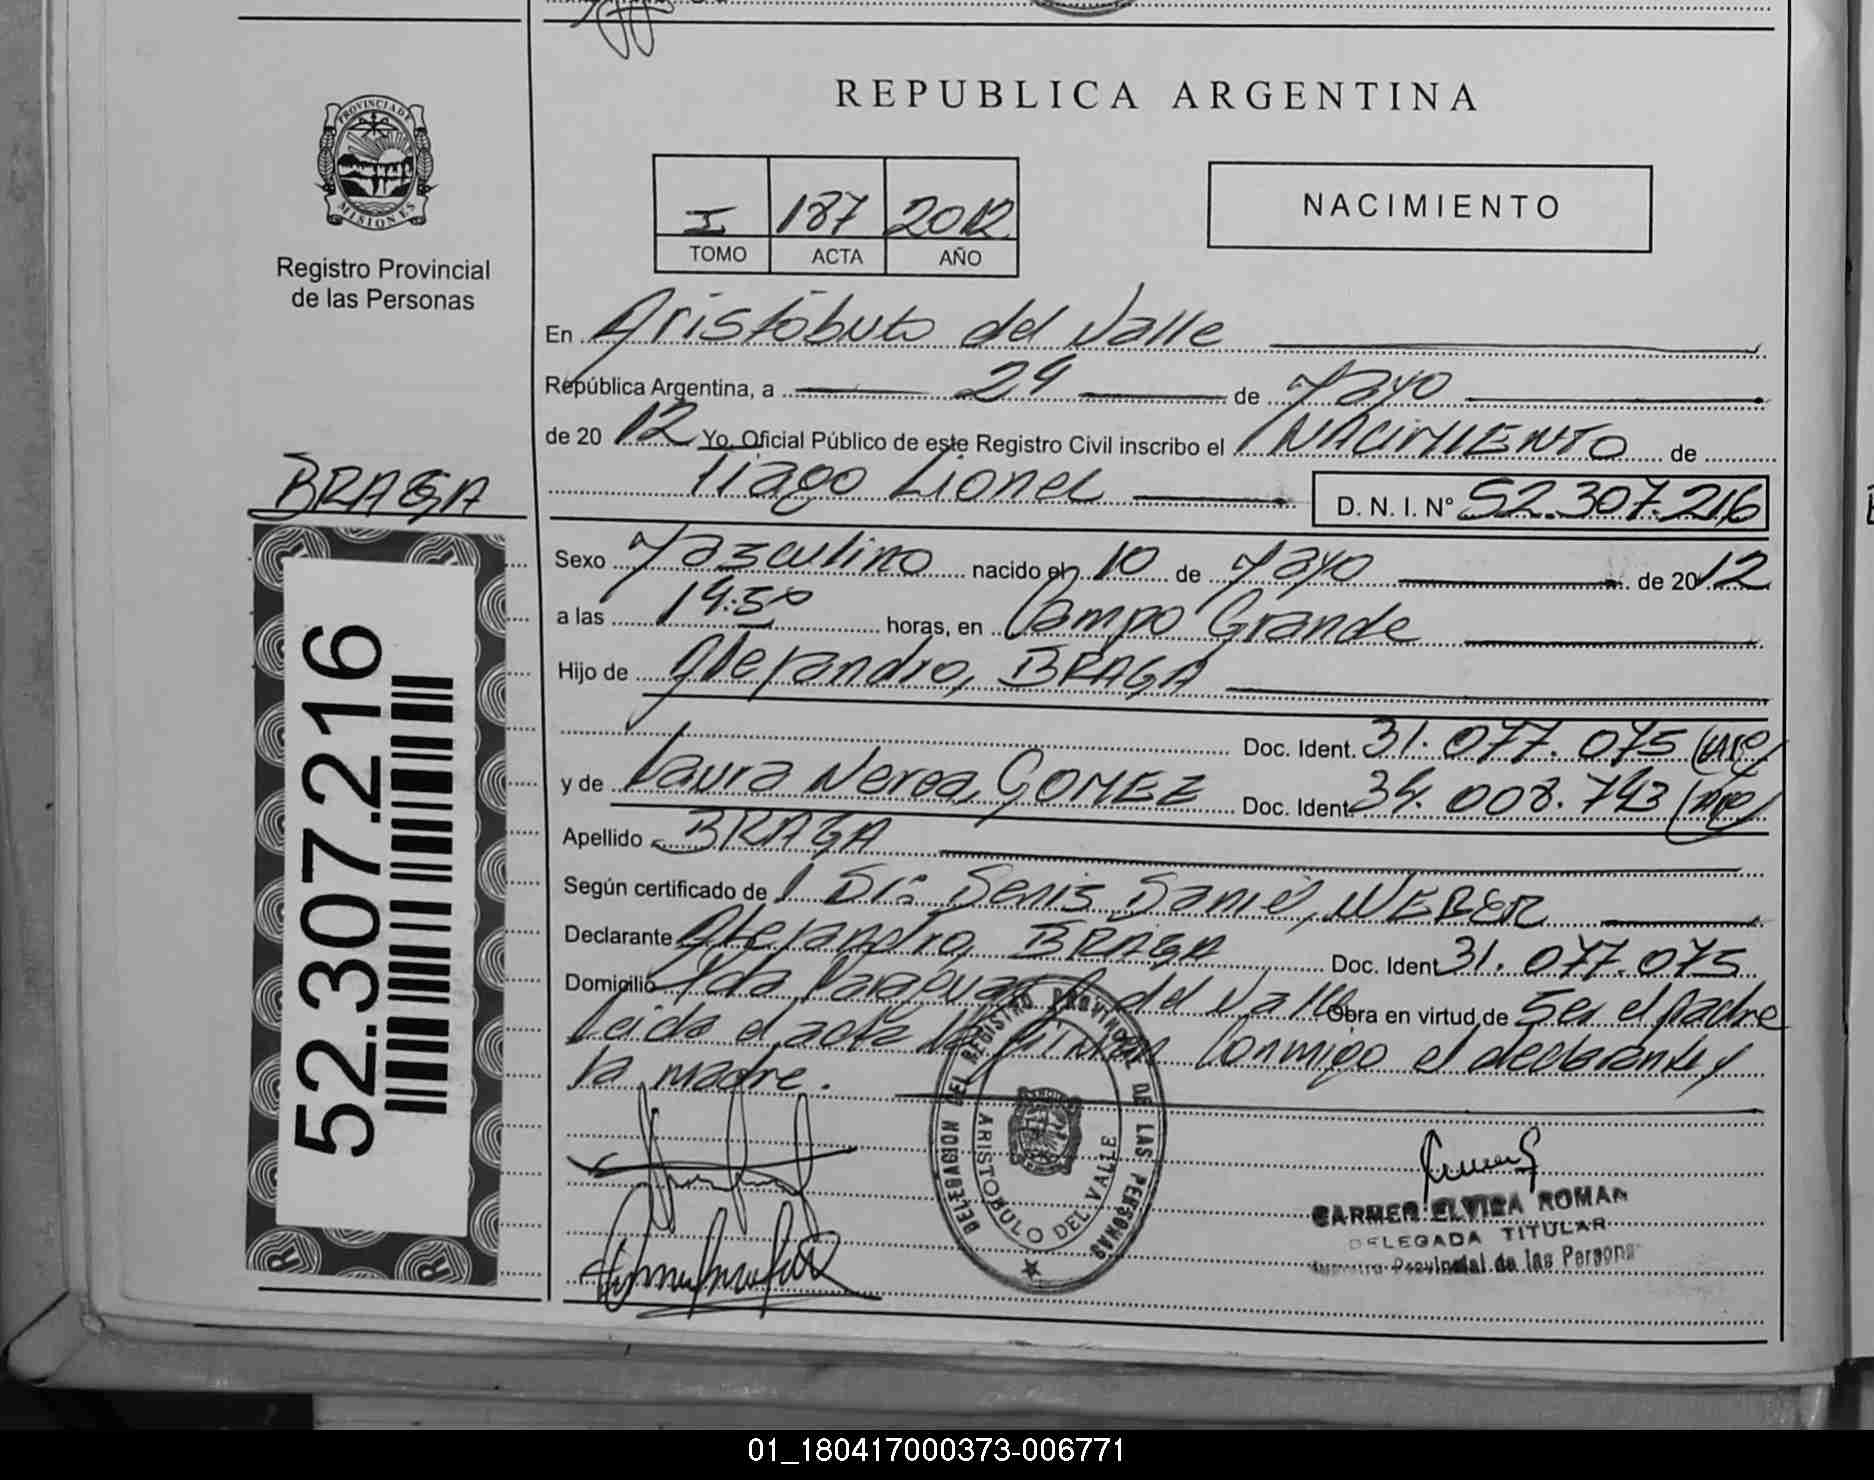 REPUBLICA ARGENTINA
PROVINCIA DE MISIONES
Registro Provincial
de las Personas
I 187 2012
TOMO ACTA AÑO
NACIMIENTO
En Aristóbulo del Valle
República Argentina, a 24 de Mayo
de 2012 Yo, Oficial Público de este Registro Civil inscribo el NACIMIENTO de
Tiago Lionel D. N. I. Nº 52.307.216
BRAGA
52.307.216
Sexo Masculino nacido el 10 de Mayo de 2012
a las 14:50 horas, en Campo Grande
Hijo de Alejandro, BRAGA
Doc. Ident. 31.077.075
y de Laura Nerea, GOMEZ Doc. Ident. 34.008.743
Apellido BRAGA
Según certificado de Dr: Denis Daniel, WEBER
Declarante Alejandro, BRAGA Doc. Ident 31.077.075
Domicilio del Valle Obra en virtud de Ser el padre
Leida el acta la firman Conmigo el declarante y
la madre.
DELEGACION DEL REGISTRO PROVINCIAL DE LAS PERSONAS
ARISTOBULO DEL VALLE
CARMEN ELVIRA ROMAN
DELEGADA TITULAR
Registro Provincial de las Personas
01_180417000373-006771